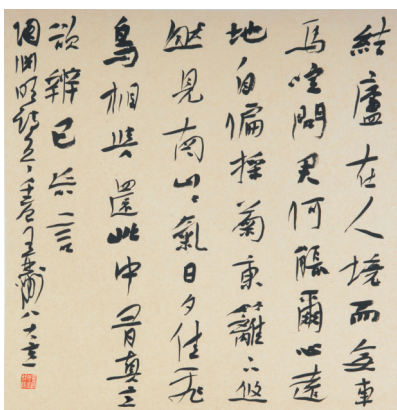 結廬在人境而無車
馬喧問君何能爾心遠
地自偏採菊東籬下悠
然見南山々氣日夕佳飛
鳥相與還此中有真意
欲辨已忘言
陶淵明詩